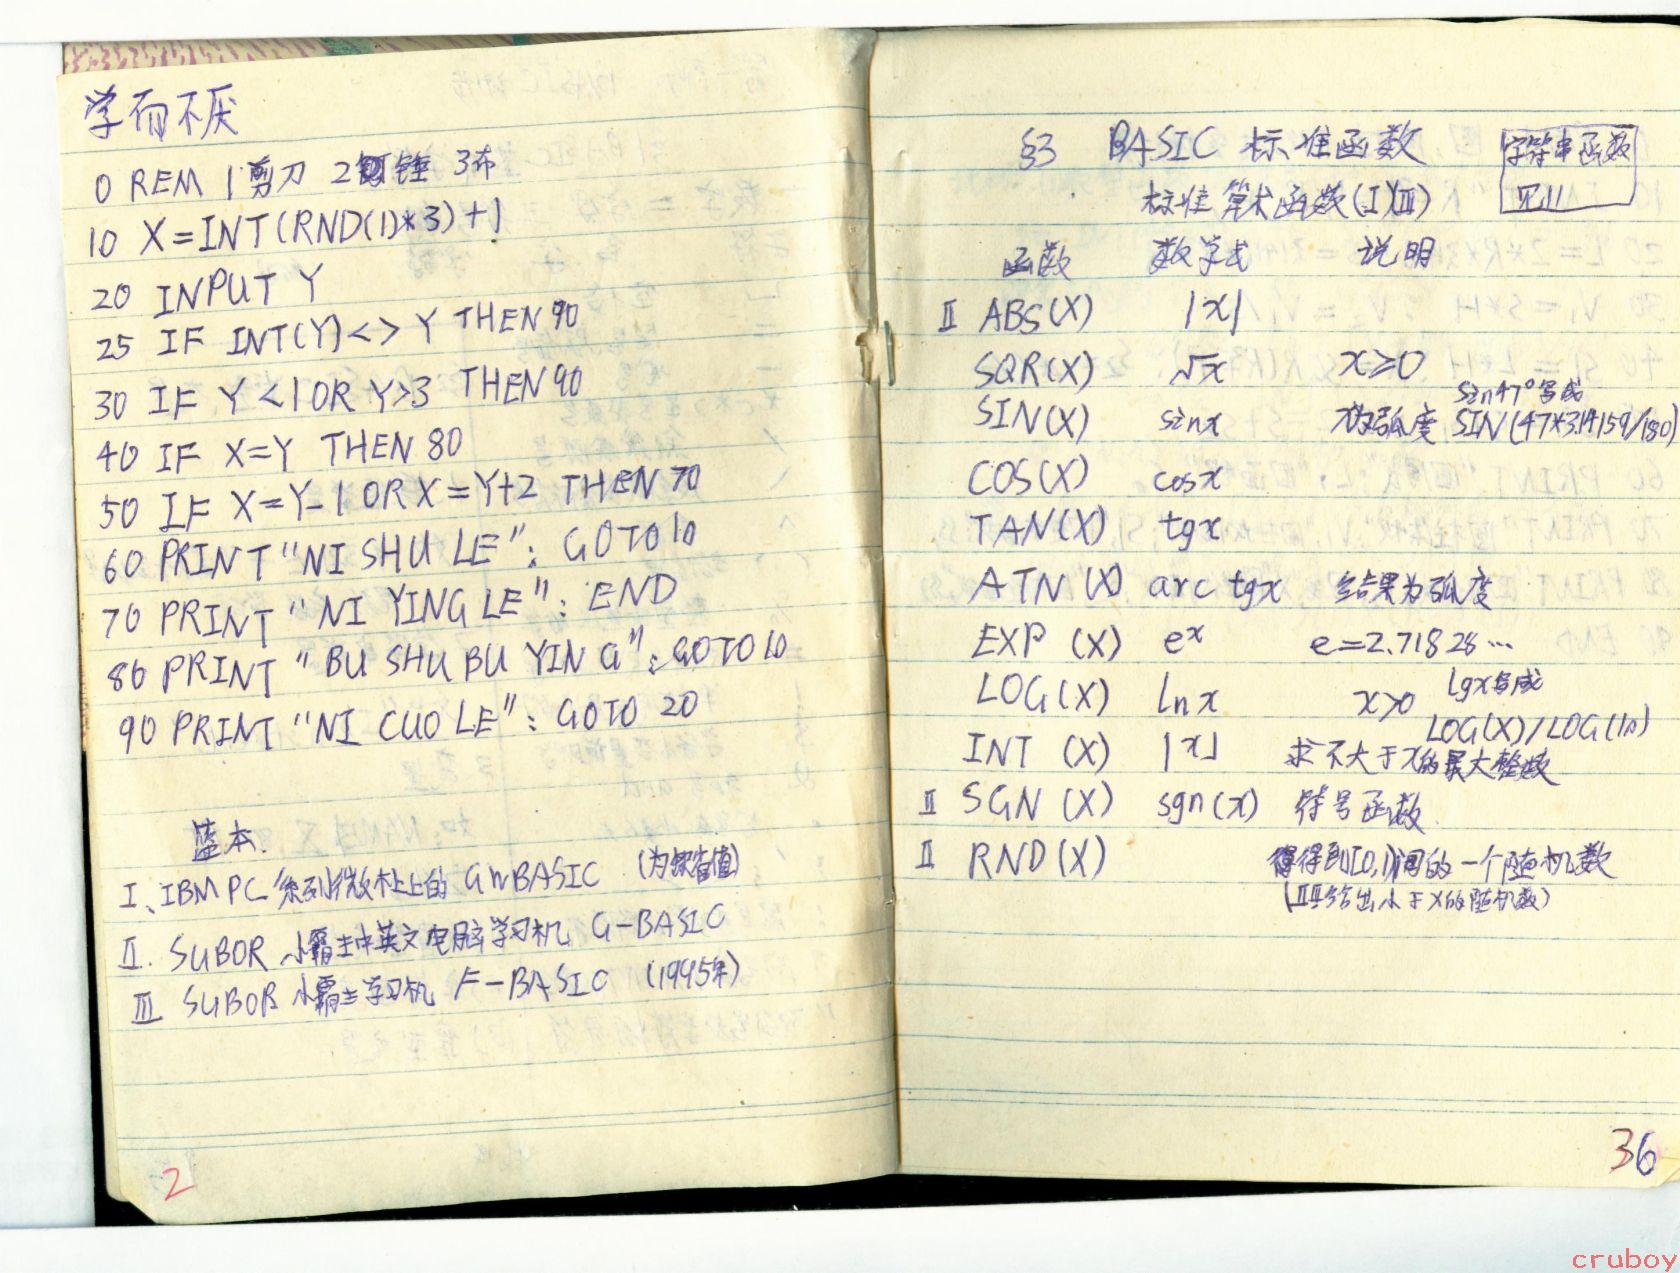 学而不厌
0 REM 1剪刀 2锤 3布
10 X=INT(RND(1)*3)+1
20 INPUT Y
25 IF INT(Y)<>Y THEN 90
30 IF Y<1 OR Y>3 THEN 90
40 IF X=Y THEN 80
50 IF X=Y-1 OR X=Y+2 THEN 70
60 PRINT "NI SHU LE": GOTO 10
70 PRINT "NI YING LE": END
80 PRINT "BU SHU BU YING": GOTO 10
90 PRINT "NI CUO LE": GOTO 20
蓝本.
I、IBM PC 系列微机上的 GWBASIC (为缺省值)
II. SUBOR 小霸王中英文电脑学习机 G-BASIC
III SUBOR 小霸王学习机 F-BASIC (1995年)
2
§3 BASIC 标准函数
字符串函数
见11
标准算术函数(I)(III)
函数 数学式 说明
II ABS(X) |x|
SQR(X) √x x≥0
sin47°写成
SIN(X) sinx x为弧度 SIN(47*3.14159/180)
COS(X) cosx
TAN(X) tgx
ATN(X) arc tgx 结果为弧度
EXP (X) e^x e=2.71828…
LOG(X) lnx x>0 lgx写成
LOG(X)/LOG(10)
INT (X) |x| 求不大于x的最大整数
II SGN (X) sgn(x) 符号函数
II RND(X) 得到[0,1)间的一个随机数
(III给出小于X的随机数)
36
cruboy